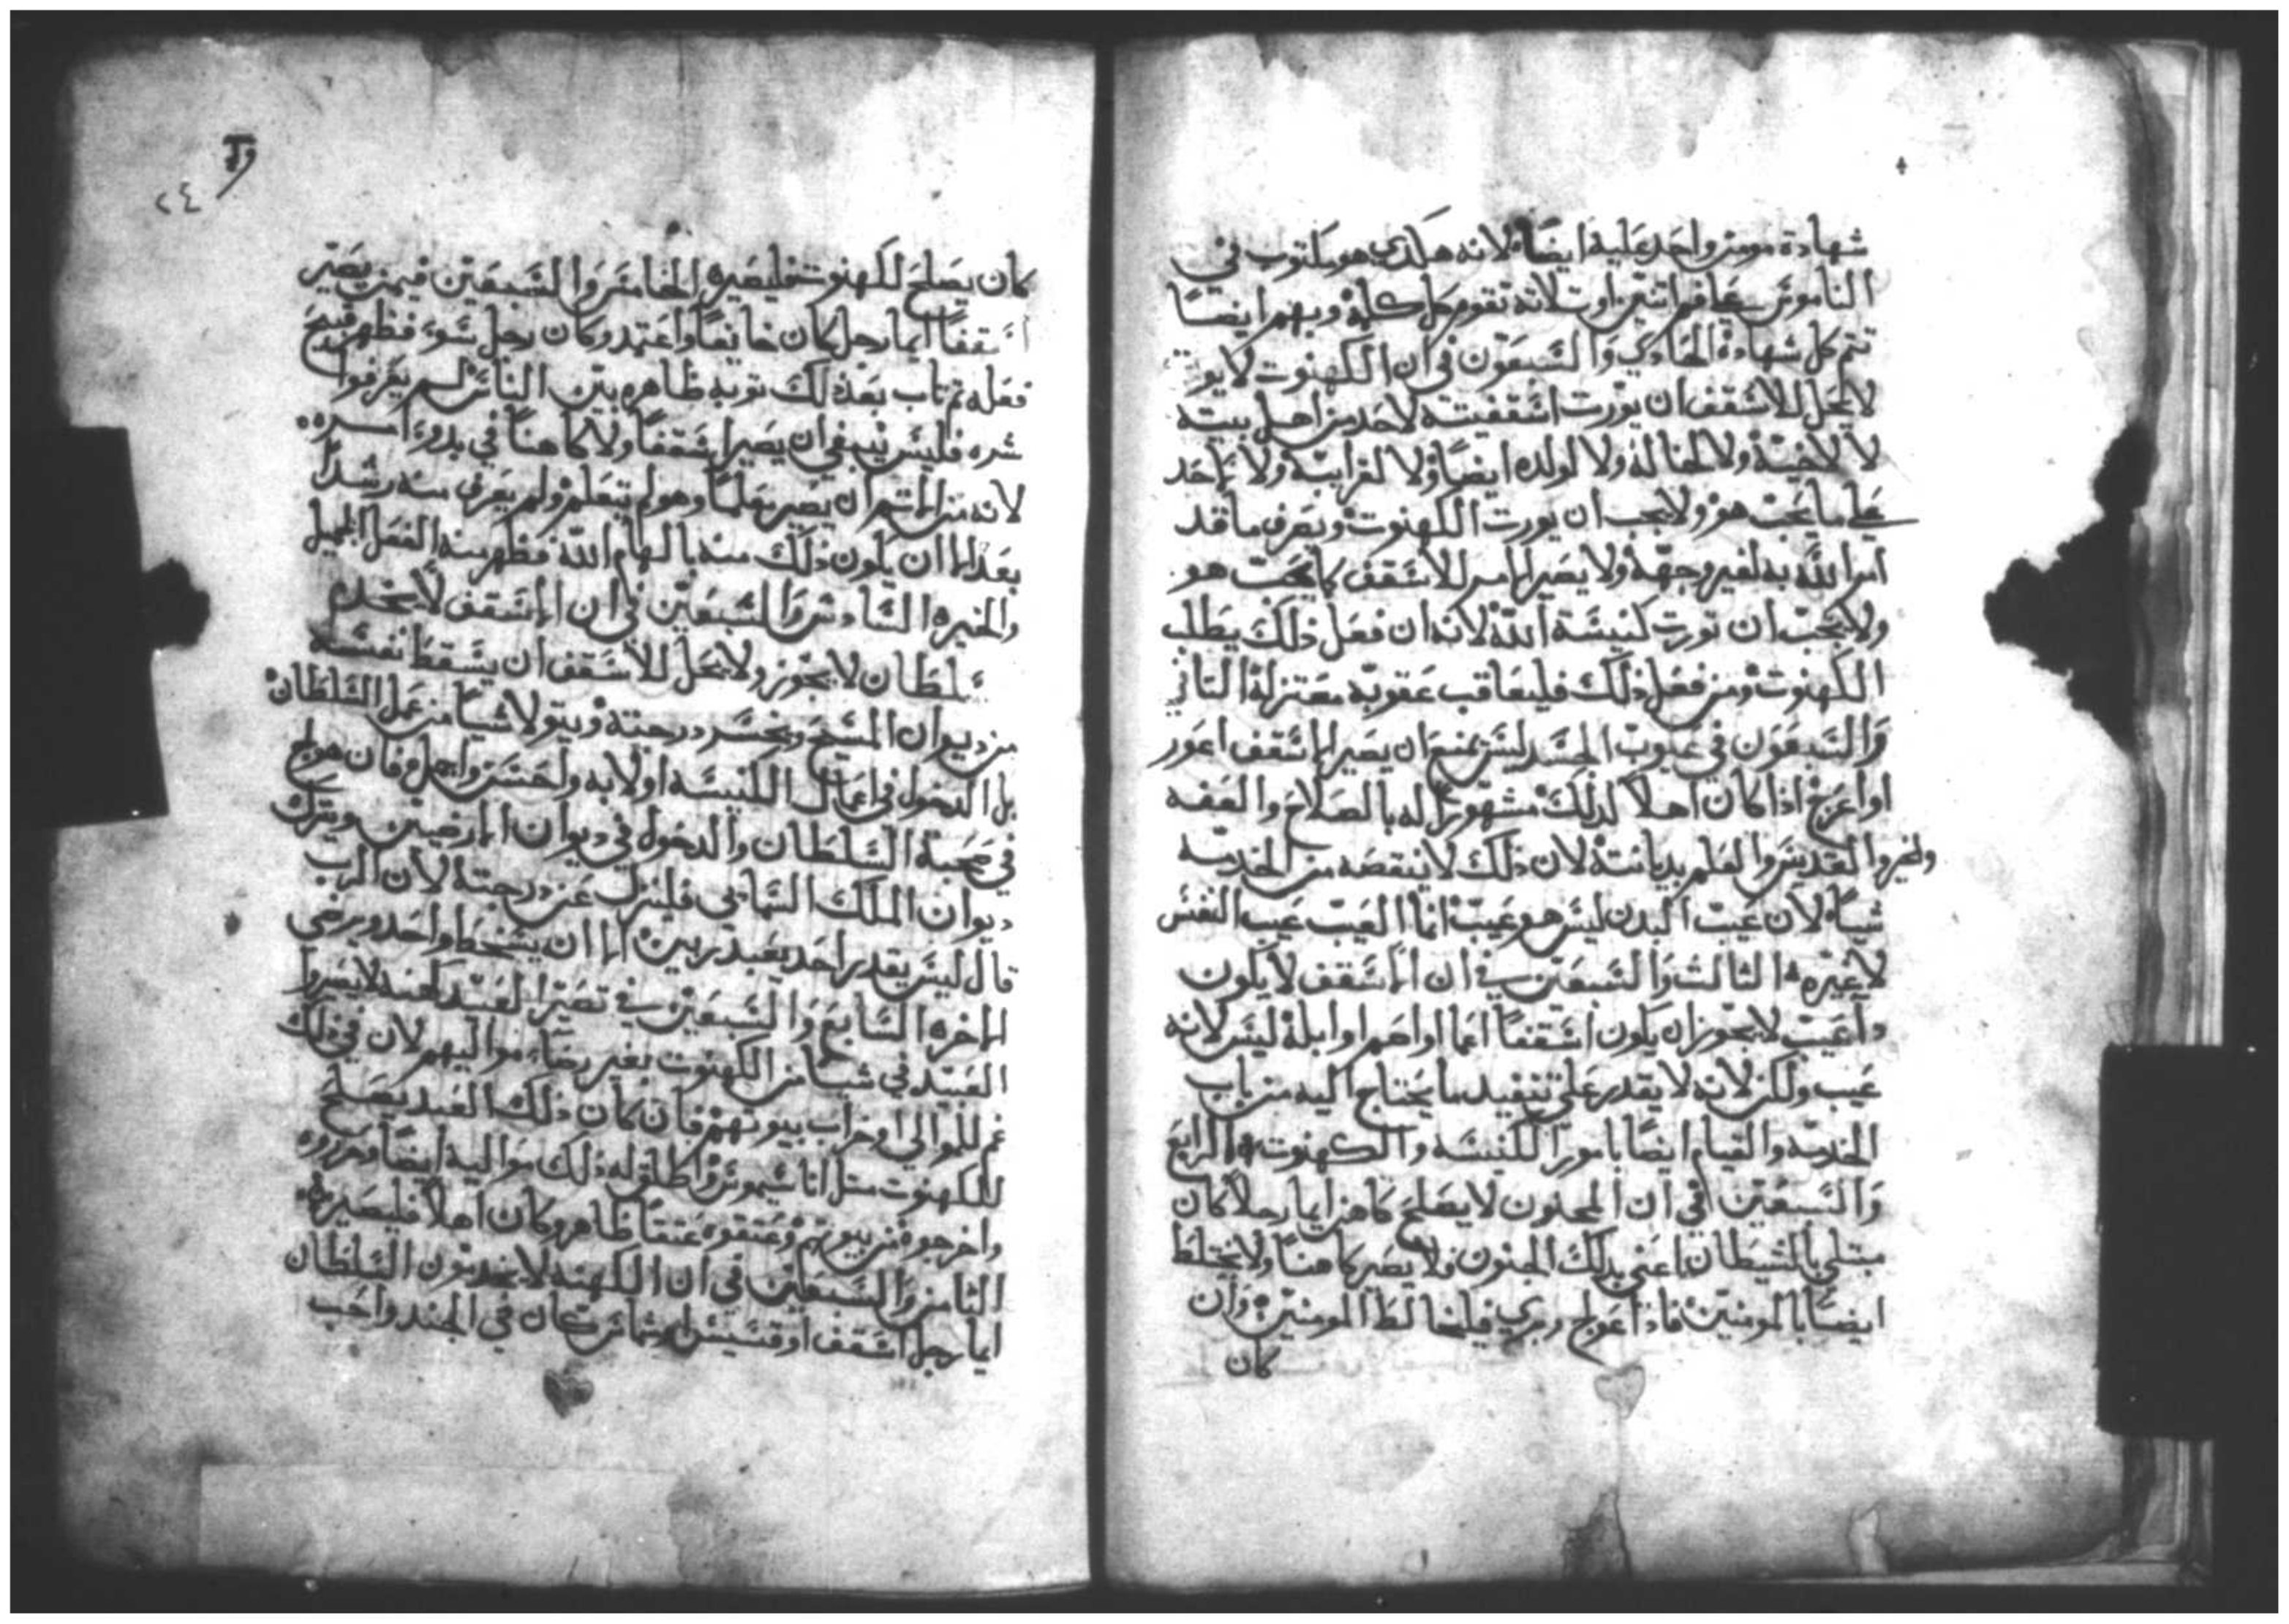 شهادة مومن واحد عليه ايضاً لانه هكذي هو مكتوب في
الناموس على فم اتنين او تلاته تقوم كل كلمة وبهم ايضاً
تتم كل شهادة الحادي والسبعون في ان الكهنوت لا يورت
لا يحل للاسقف ان يورت اسقفيته لاحد من اهل بيته
لا لاخيه ولا لخاله ولا لولده ايضاً ولا لقرابته ولا لاحد
على ما يحب هو ولا يجب ان يورت الكهنوت ويصرف ما قد
امر الله به لغير وجهه ولا يصير الامر للاسقف كما يحب هو
ولا يجب ان تورت كنيسة الله لانه ان فعل ذلك يطلب
الكهنوت ومن فعل ذلك فليعاقب عقوبه معتزلة التاني
والسبعون في عيوب الجسد ليس يمنع ان يصير الاسقف اعور
او اعرج اذا كان اهلا لذلك مشهورا له بالصلاح والعفه
والخير والقديس والعلم بديانته لان ذلك لا ينقصه من الخدمه
شياً لان عيب البدن ليس هو عيب انما العيب عيب النفس
لا غيره الثالث والسبعين في ان الاسقف لا يكون
دا عيب لا يجوز ان يكون اسقفاً اعما او اصم او ابله ليس لانه
عيب ولكن لانه لا يقدر على تنفيد ما يحتاج اليه من باب
الخدمه والقيام ايضاً بامور الكنيسه والكهنوت الرابع
والسبعين في ان المجنون لا يصلح كاهن ايما رجلا كان
مبتلي بالشيطان اعني بذلك الجنون فلا يصير كاهناً ولا يختلط
ايضاً بالمومنين فاذا عولج وبري فليخالط المومنين وان
كان
٢٤
كان يصلح لكهنوت فليصيره الخامس والسبعين فيمن يصير
اسقفاً ايما رجل كان خانعاً واعتمد وكان رجل سوء فظهر قبيح
فعله تم تاب بعد ذلك توبه ظاهره بين الناس لم يعرفوا
شره فليس ينبغي ان يصير اسقفاً ولا كاهناً في بدوء امره
لانه من الاتم ان يصير معلماً وهو لم يتعلم ولم يعرف منه رشداً
بعد الا ان يكون ذلك منه بالهام الله فظهر منه الفعل الجميل
والخيره السادس والسبعين في ان الاسقف لا يخدم
سلطان لا يجوز ولا يحل للاسقف ان يسقط نفسه
من ديوان المسيح ويخسر درجته ويتولا شياً من عمل السلطان
بل الدخول في اعمال الكنيسه اولا به واحسن واجمل وفان هو لج
في صحبة السلطان والدخول في ديوان الارضيين ويترك
ديوان الملك السمايي فلينزل عن درجته لان الرب
قال ليس يقدر احد يعبد ربين الا ان يسخط واحد ويرضي
الاخره السابع والسبعين في تصير العبيد كهنه لا يصروا
العبيد في شياً من الكهنوت بغير رضاء مواليهم لان في ذلك
غم للموالي اوخراب بيوتهم فان كان ذلك العبد يصلح
للكهنوت متل اناسيموس واطلق له ذلك مواليه ايضاً وحرروه
واخرجوه من بيوتهم وعتقوه عتقاً ظاهر وكان اهلا فليصيره
الثامن والسبعين في ان الكهنه لا يخدمون السلطان
ايما رجل اسقف او قسيس او شماس كان في الجند واحب